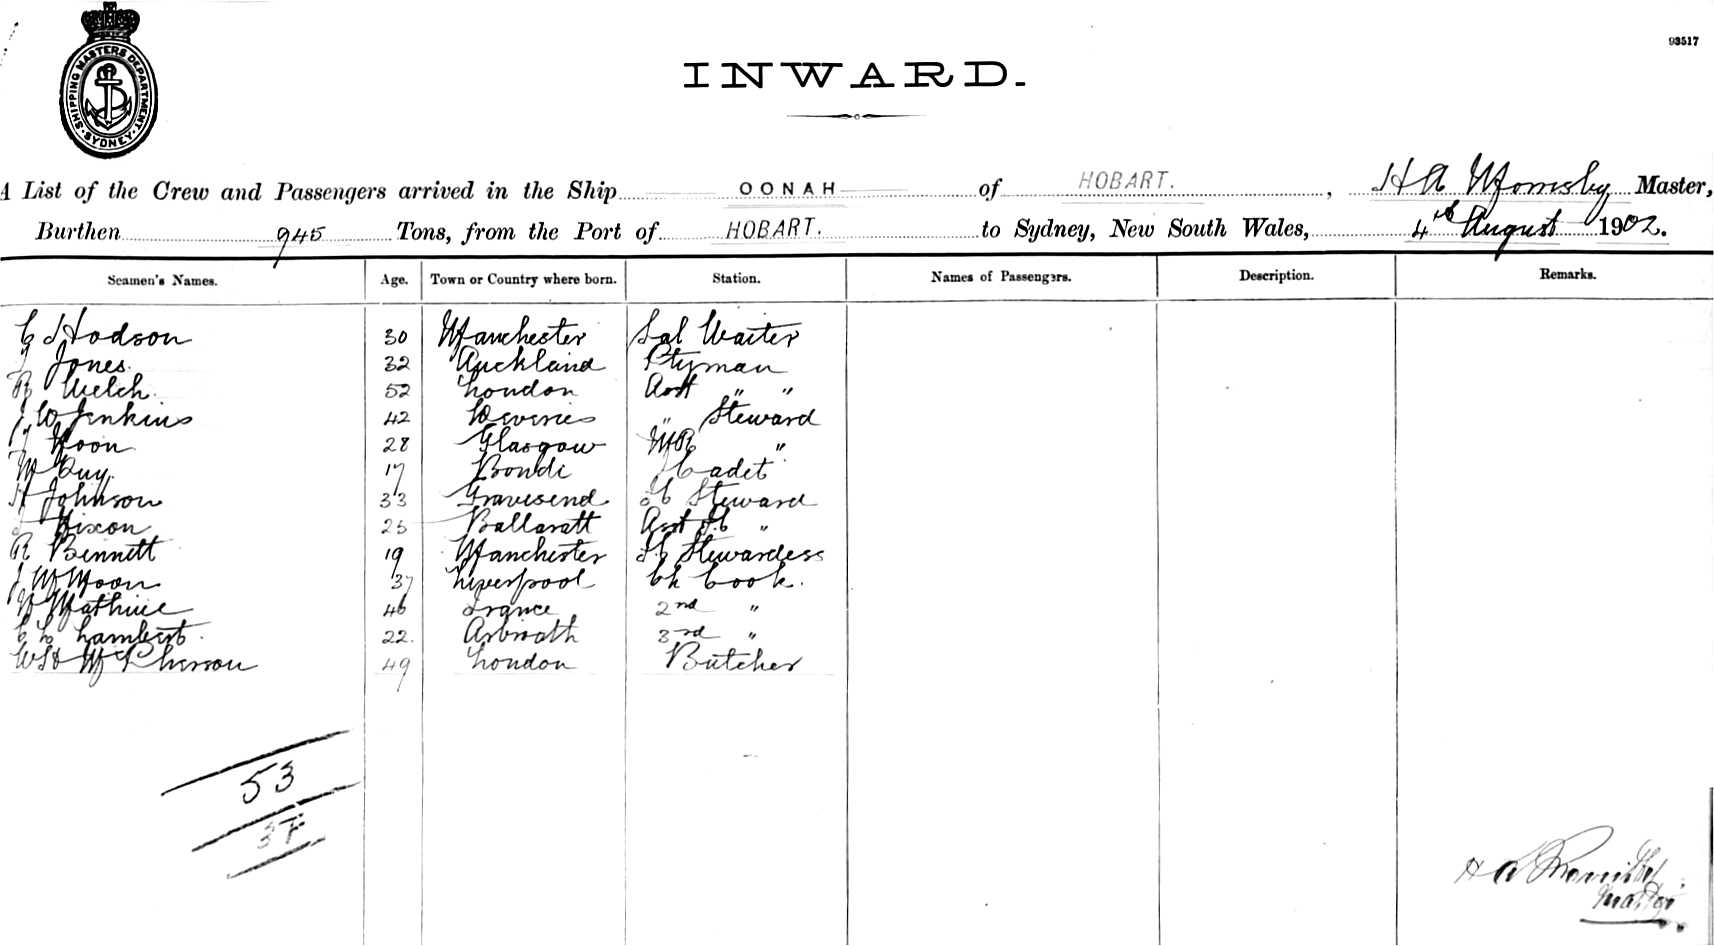 SHIPPING MASTERS DEPARTMENT
SYDNEY
93517
INWARD.
A List of the Crew and Passengers arrived in the Ship OONAH of HOBART. , H A Master,
Burthen 945 Tons, from the Port of HOBART. to Sydney, New South Wales, 4th August 1902.
Seamen's Names. Age. Town or Country where born. Station. Names of Passengers. Description. Remarks.
C Hodson 30 Manchester Sal Waiter
Jones. 32 Auckland Ptyman
R Welch. 52 London Asst " "
J W Jenkins 42 " Steward
28 Glasgow "
M Guy. 17 Bondi Cadet
H Johnson 33 Gravesend Steward
25 Ballaratt Asst "
R Bennett 19 Manchester Stewardess
J M Moon 37 Liverpool Ch Cook.
46 France 2nd "
C L Lambert. 22. Arbroath 3rd "
W H McPherson 49 London Butcher
53
37
H A
Master